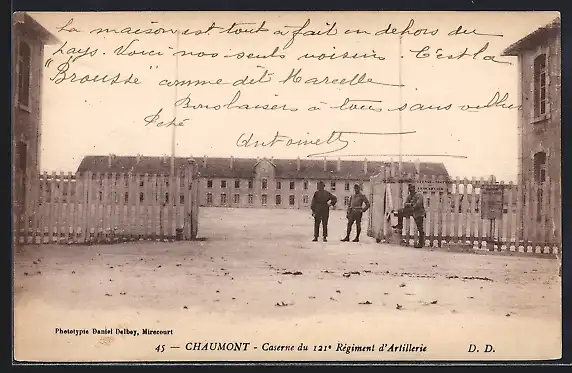 La maison est tout à fait en dehors du
pays. Voici nos seuls voisins. C'est la
"Brousse" comme dit Marcelle
Bons baisers à tous sans oublier
Pché
Antoinette
Photographie Daniel Delbey, Mirecourt
45 — CHAUMONT - Caserne du 121e Régiment d'Artillerie
D. D.